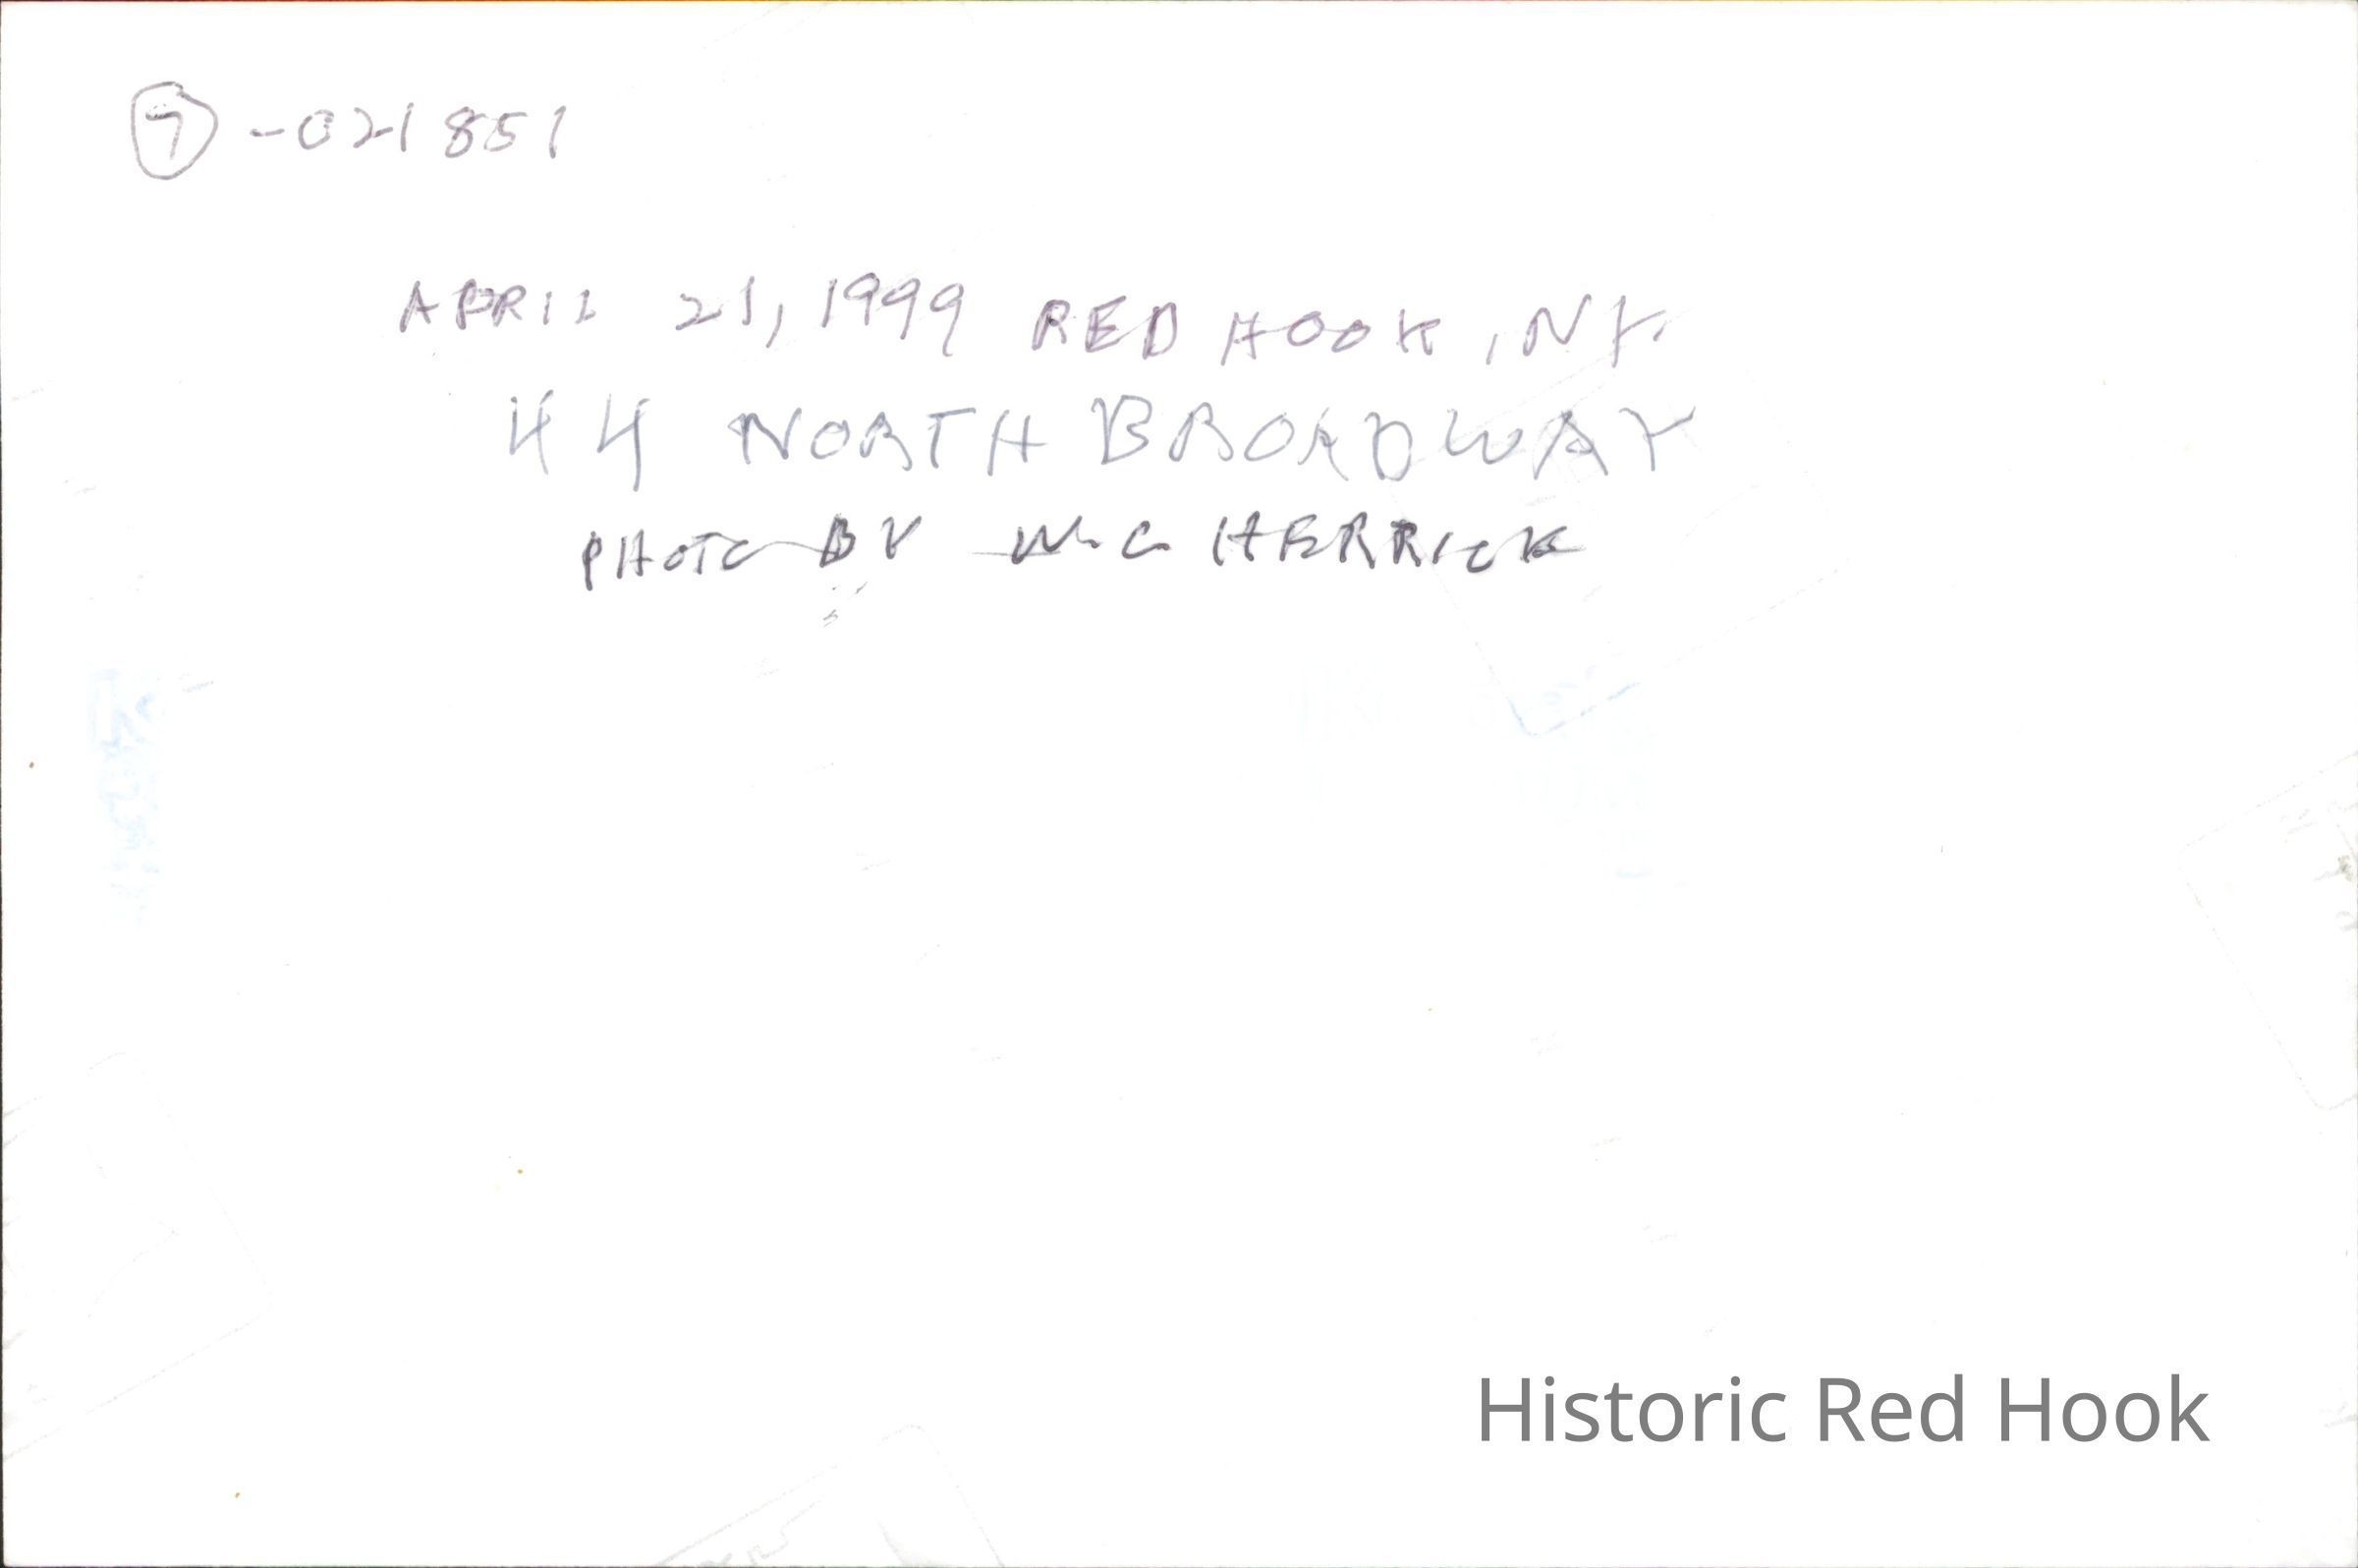 7 -021851
APRIL 21, 1999 RED HOOK, NY.
44 NORTH BROADWAY
PHOTO BY W.C HERRICK
Historic Red Hook